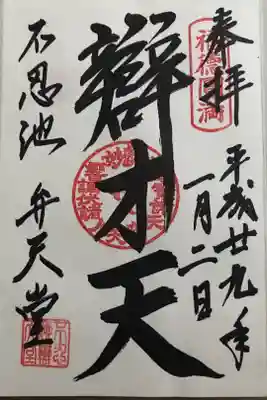 奉拝
平成廿九年
一月二日
辯才天
不忍池 弁天堂